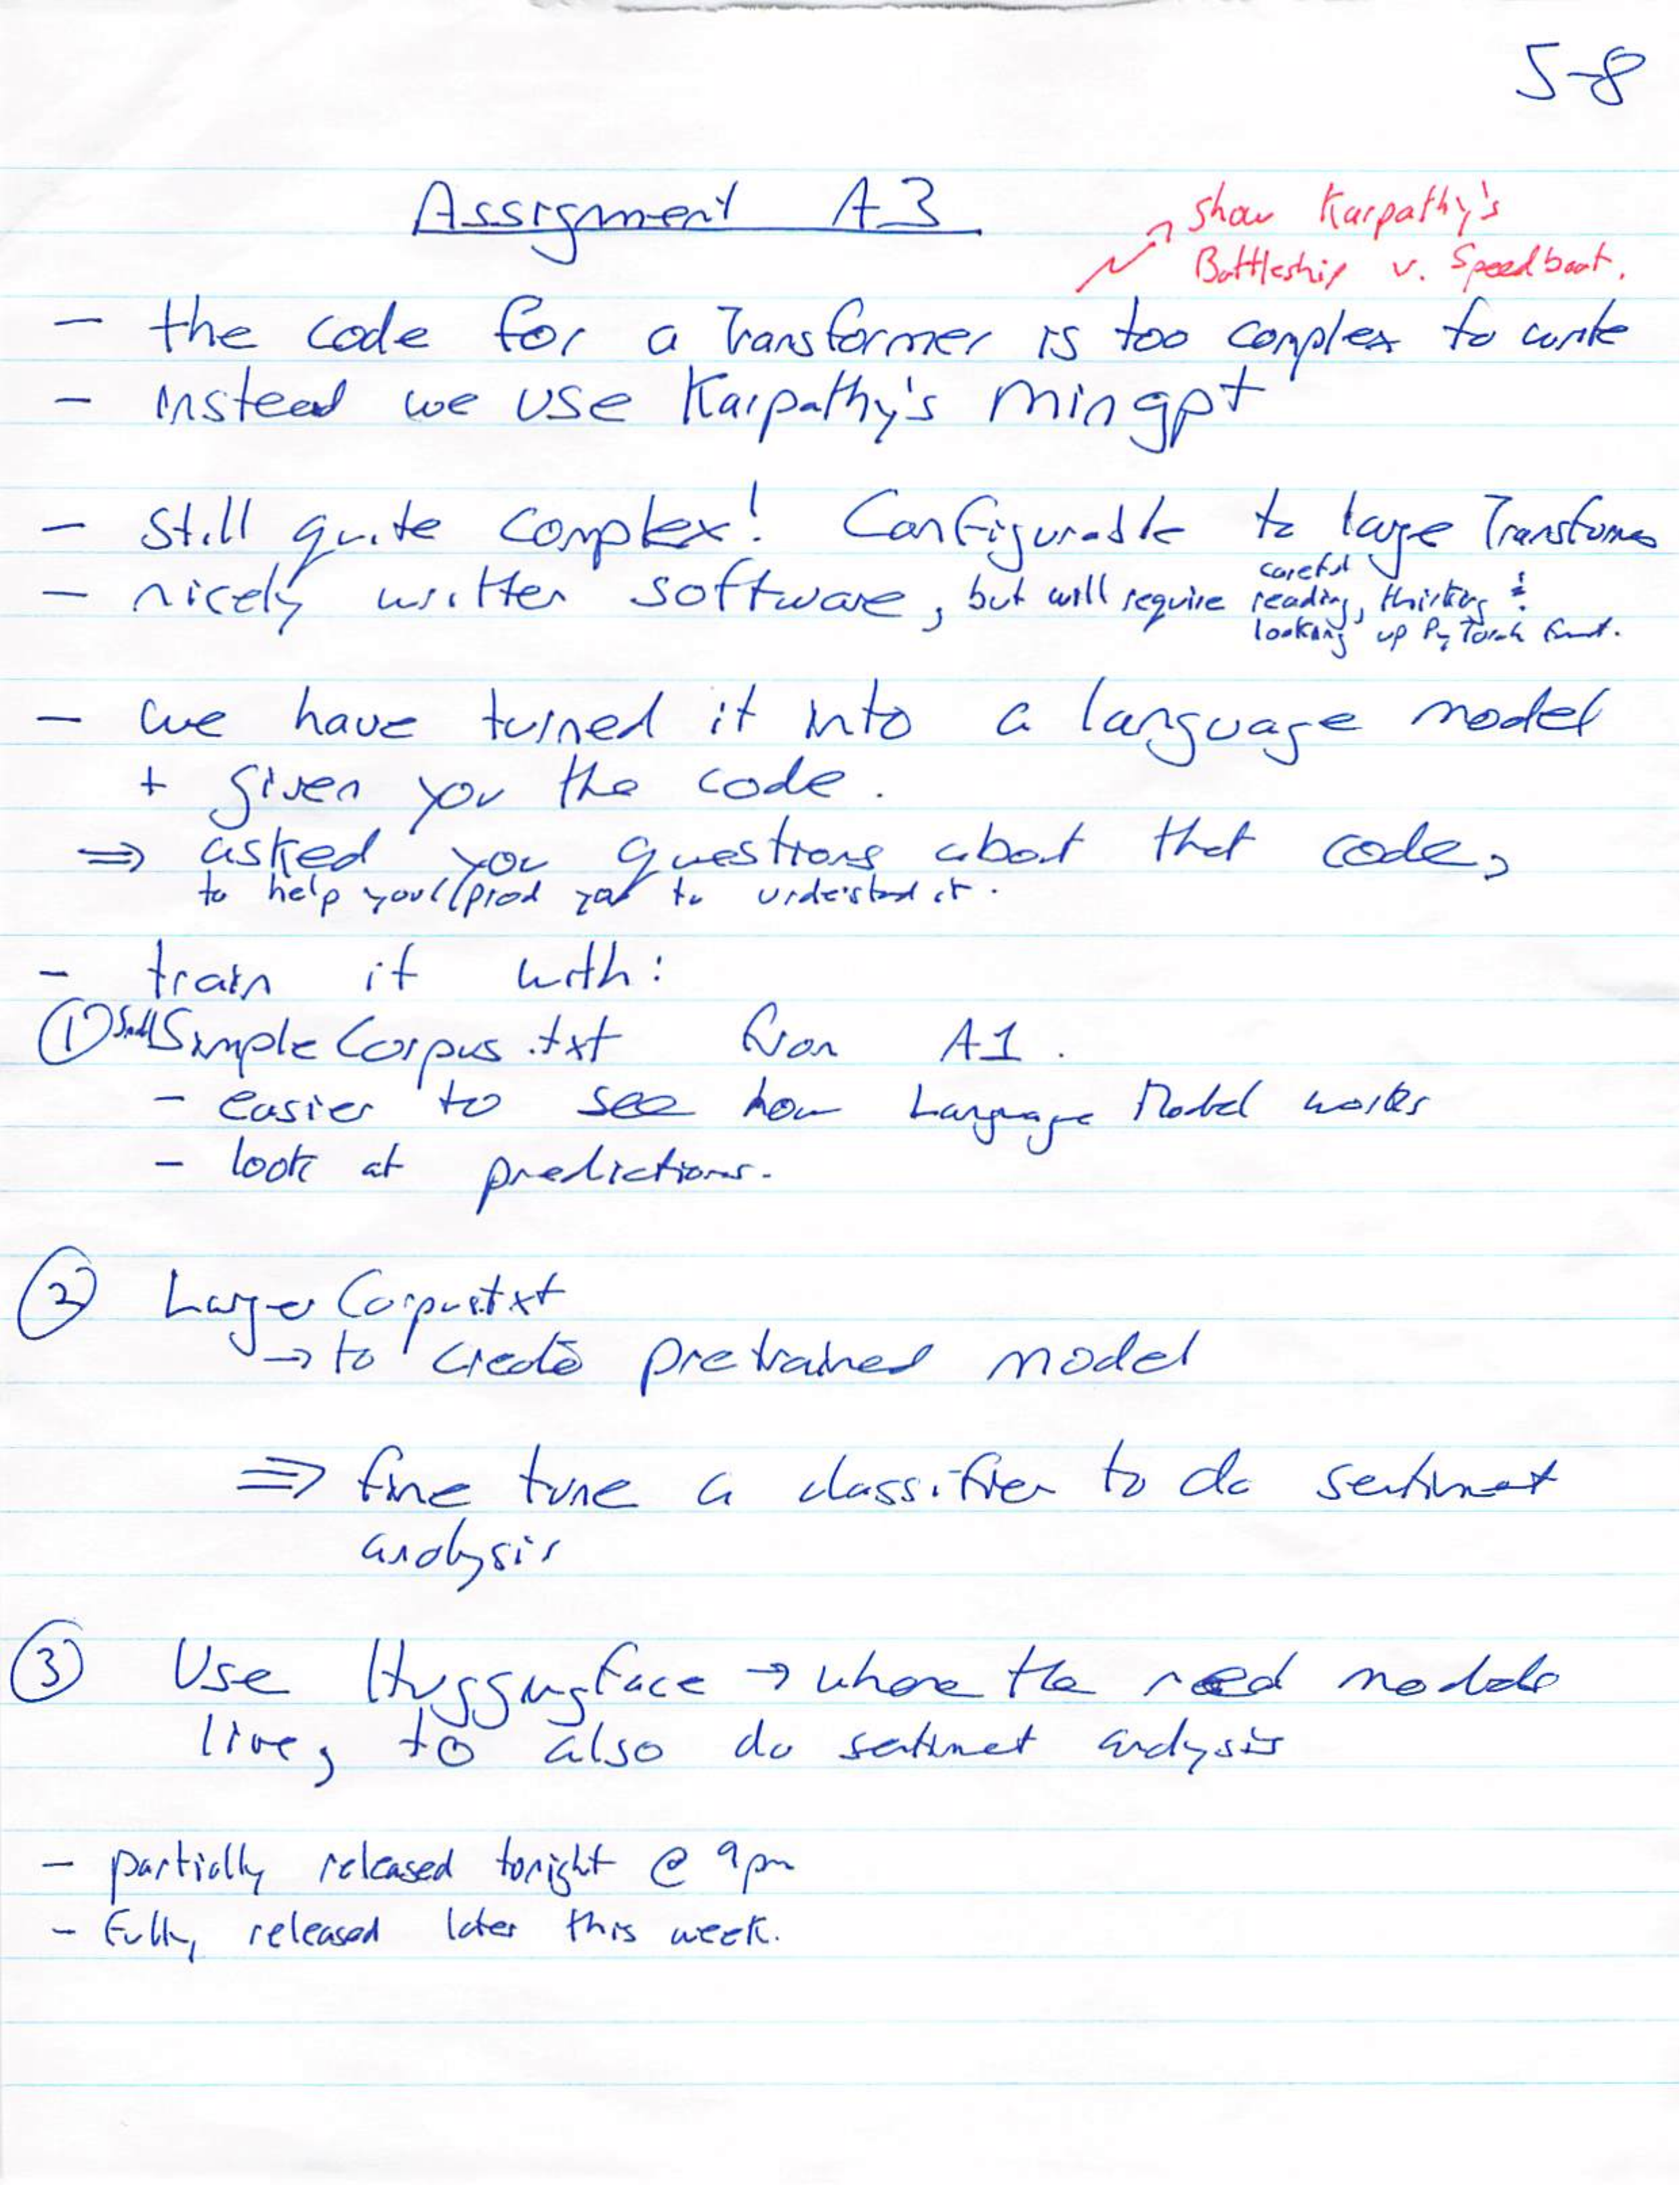 5-8
Assignment A3
show Karpathy's
Battleship v. Speedboat.
- the code for a Transformer is too complex to write
- instead we use Karpathy's mingpt
- still quite complex! Configurable to large Transformers
- nicely written software, but will require careful reading, thinking &
looking up PyTorch funct.
- we have turned it into a language model
+ given you the code.
⇒ asked you questions about that code,
to help you/prod you to understand it.
- train it with:
① Small SimpleCorpus.txt from A1.
- easier to see how Language Model works
- look at predictions.
② LargerCorpus.txt
→ to create pretrained model
⇒ fine tune a classifier to do sentiment
analysis
③ Use Huggingface → where the real models
live, to also do sentiment analysis
- partially released tonight @ 9pm
- fully released later this week.